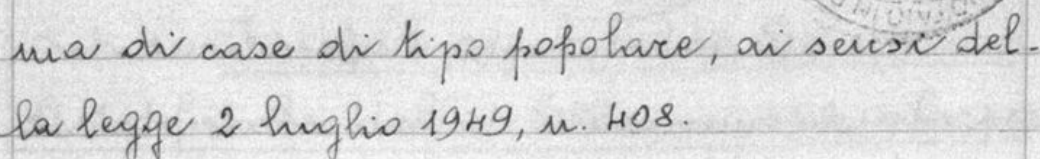 ma di case di tipo popolare, ai sensi del-
la legge 2 luglio 1949, n. 408.